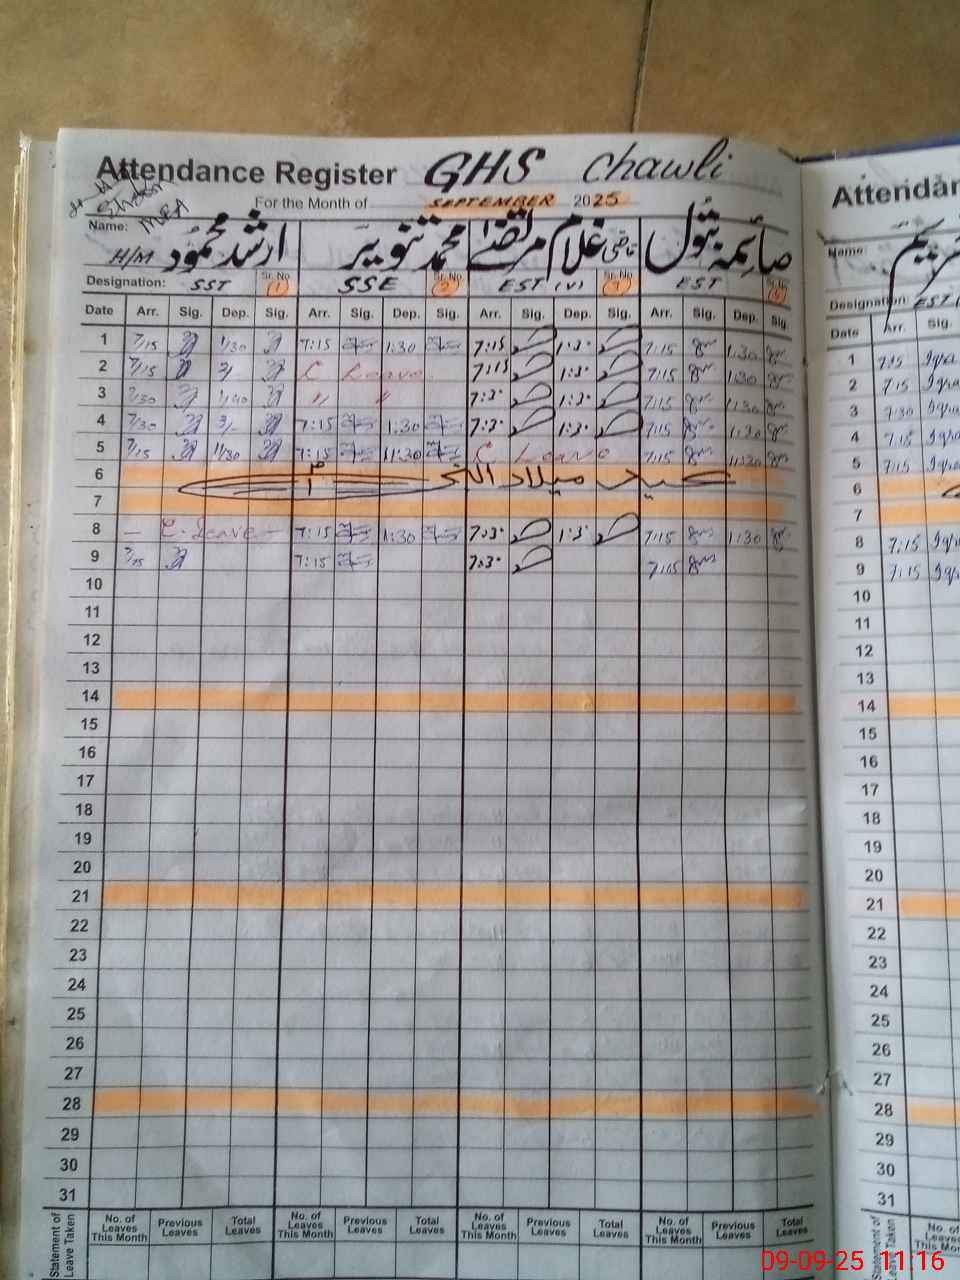 Attendance Register GHS Chawli
For the Month of SEPTEMBER 2025
Name: H/M ارشد محمود محمد تنویر قاضی غلام مرتضیٰ صائمہ بتول
Designation: SST Sr. No 1 SSE Sr. No 2 EST (V) Sr. No 3 EST Sr. No 4
Date Arr. Sig. Dep. Sig. Arr. Sig. Dep. Sig. Arr. Sig. Dep. Sig. Arr. Sig. Dep. Sig.
1 7/15 1/30 7:15 1:30 7:15 1:30 7:15 1:30
2 7/15 C Leave 7:15 1:30 7:15 1:30
3 7/30 1/40 " " 7:30 1:30 7:15 1:30
4 7/30 7:15 1:30 7:30 1:30 7:15 1:30
5 7/15 1/30 7:15 1:30 C Leave 7:15 1:30
6 عید میلاد النبی
7
8 — C. Leave — 7:15 1:30 7:30 1:30 7:15 1:30
9 7/15 7:15 7:30 7:15
10
11
12
13
14
15
16
17
18
19
20
21
22
23
24
25
26
27
28
29
30
31
Statement of Leave Taken
No. of Leaves This Month Previous Leaves Total Leaves No. of Leaves This Month Previous Leaves Total Leaves No. of Leaves This Month Previous Leaves Total Leaves No. of Leaves This Month Previous Leaves Total Leaves
Attendan
Name:
Designation: EST
Date Arr. Sig.
1 7:15 Iqra
2 7:15 Iqra
3 7:30 Iqra
4 7:15 Iqra
5 7:15 Iqra
6
7
8 7:15 Iqra
9 7:15 Iqra
10
11
12
13
14
15
16
17
18
19
20
21
22
23
24
25
26
27
28
29
30
31
Statement of Leave Taken
No. of Leaves This Month
09-09-25 11:16